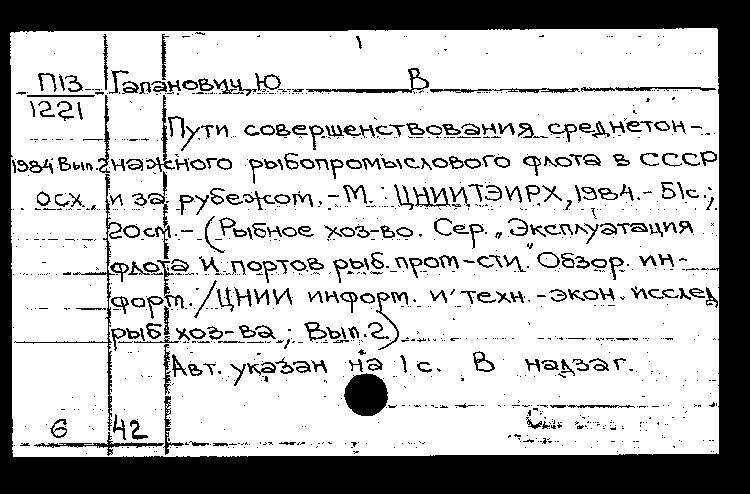 П13 Гапанович, Ю В
1221
Пути совершенствования среднетон-
1984 Вып.2 нажного рыбопромыслового флота в СССР
осх. и за рубежом. - М. : ЦНИИТЭИРХ, 1984. - 51с.;
20см. - (Рыбное хоз-во. Сер. „Эксплуатация
флота и портов рыб. пром-сти." Обзор. ин-
форм. / ЦНИИ информ. и техн.-экон. исслед
рыб хоз-ва ; Вып. 2.)
Авт. указан на 1 с. В надзаг.
6 42